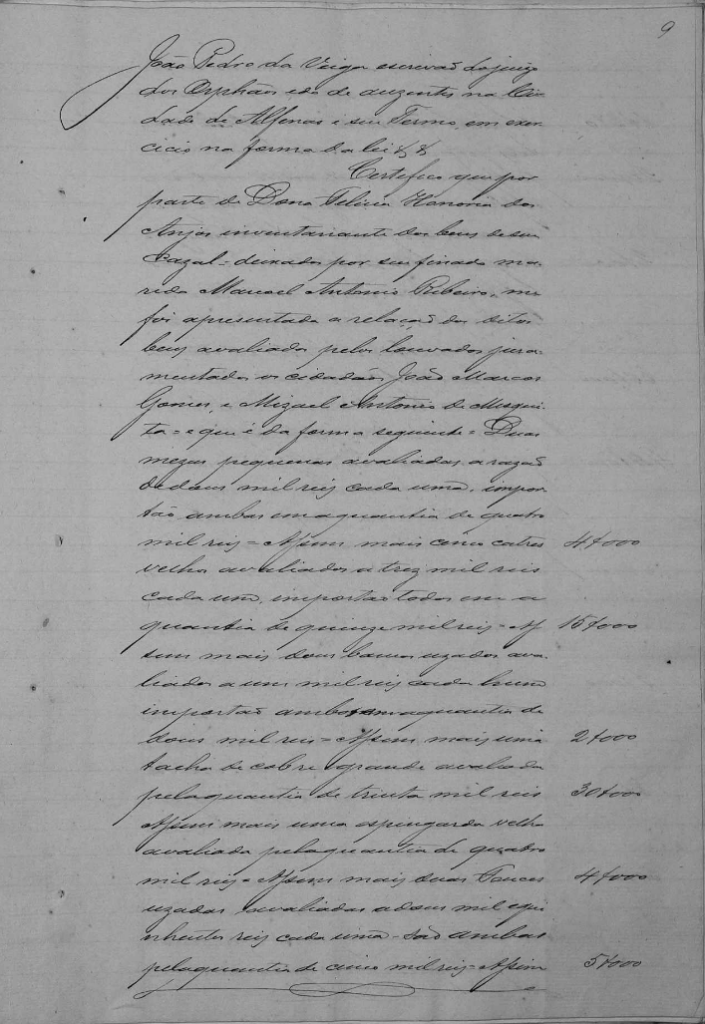 9
João Pedro da Veiga escrivaõ do juizo
dos Orphãos e do de auzentes na Ci
dade de Alfenas e seu Termo, em exer
cicio na forma da lei &. &
Certifico que por
parte de Dona Felicia Honoria dos
Anjos inventariante dos bens de seu
cazal = deixados por seu finado ma
rido Manoel Antonio Ribeiro, me
foi apresentada a relaçaõ dos ditos
bens avaliados pelos louvados jura
mentados os cidadãos João Marcos
Gomes, e Mizael Antonio de Mesqui
ta = e que é da forma seguinte = Duas
mezas pequenas avaliadas a razaõ
de dous mil reis cada uma, impor
taõ ambas em a quantia de quatro
mil reis = Assim mais cinco catres 4$000
velhos avaliados a trez mil reis
cada um, importaõ todos em a
quantia de quinze mil reis = As 15$000
sim mais dous bancos uzados ava
liados a um mil reis cada hum
importaõ ambos em a quantia de
dous mil reis = Assim mais uma 2$000
tacha de cobre grande avaliada
pela quantia de trinta mil reis 30$000
Assim mais uma espingarda velha
avaliada pela quantia de quatro
mil reis = Assim mais duas 4$000
uzadas avaliadas a dous mil e qui
nhentos reis cada uma = saõ ambas
pela quantia de cinco mil reis = Assim 5$000